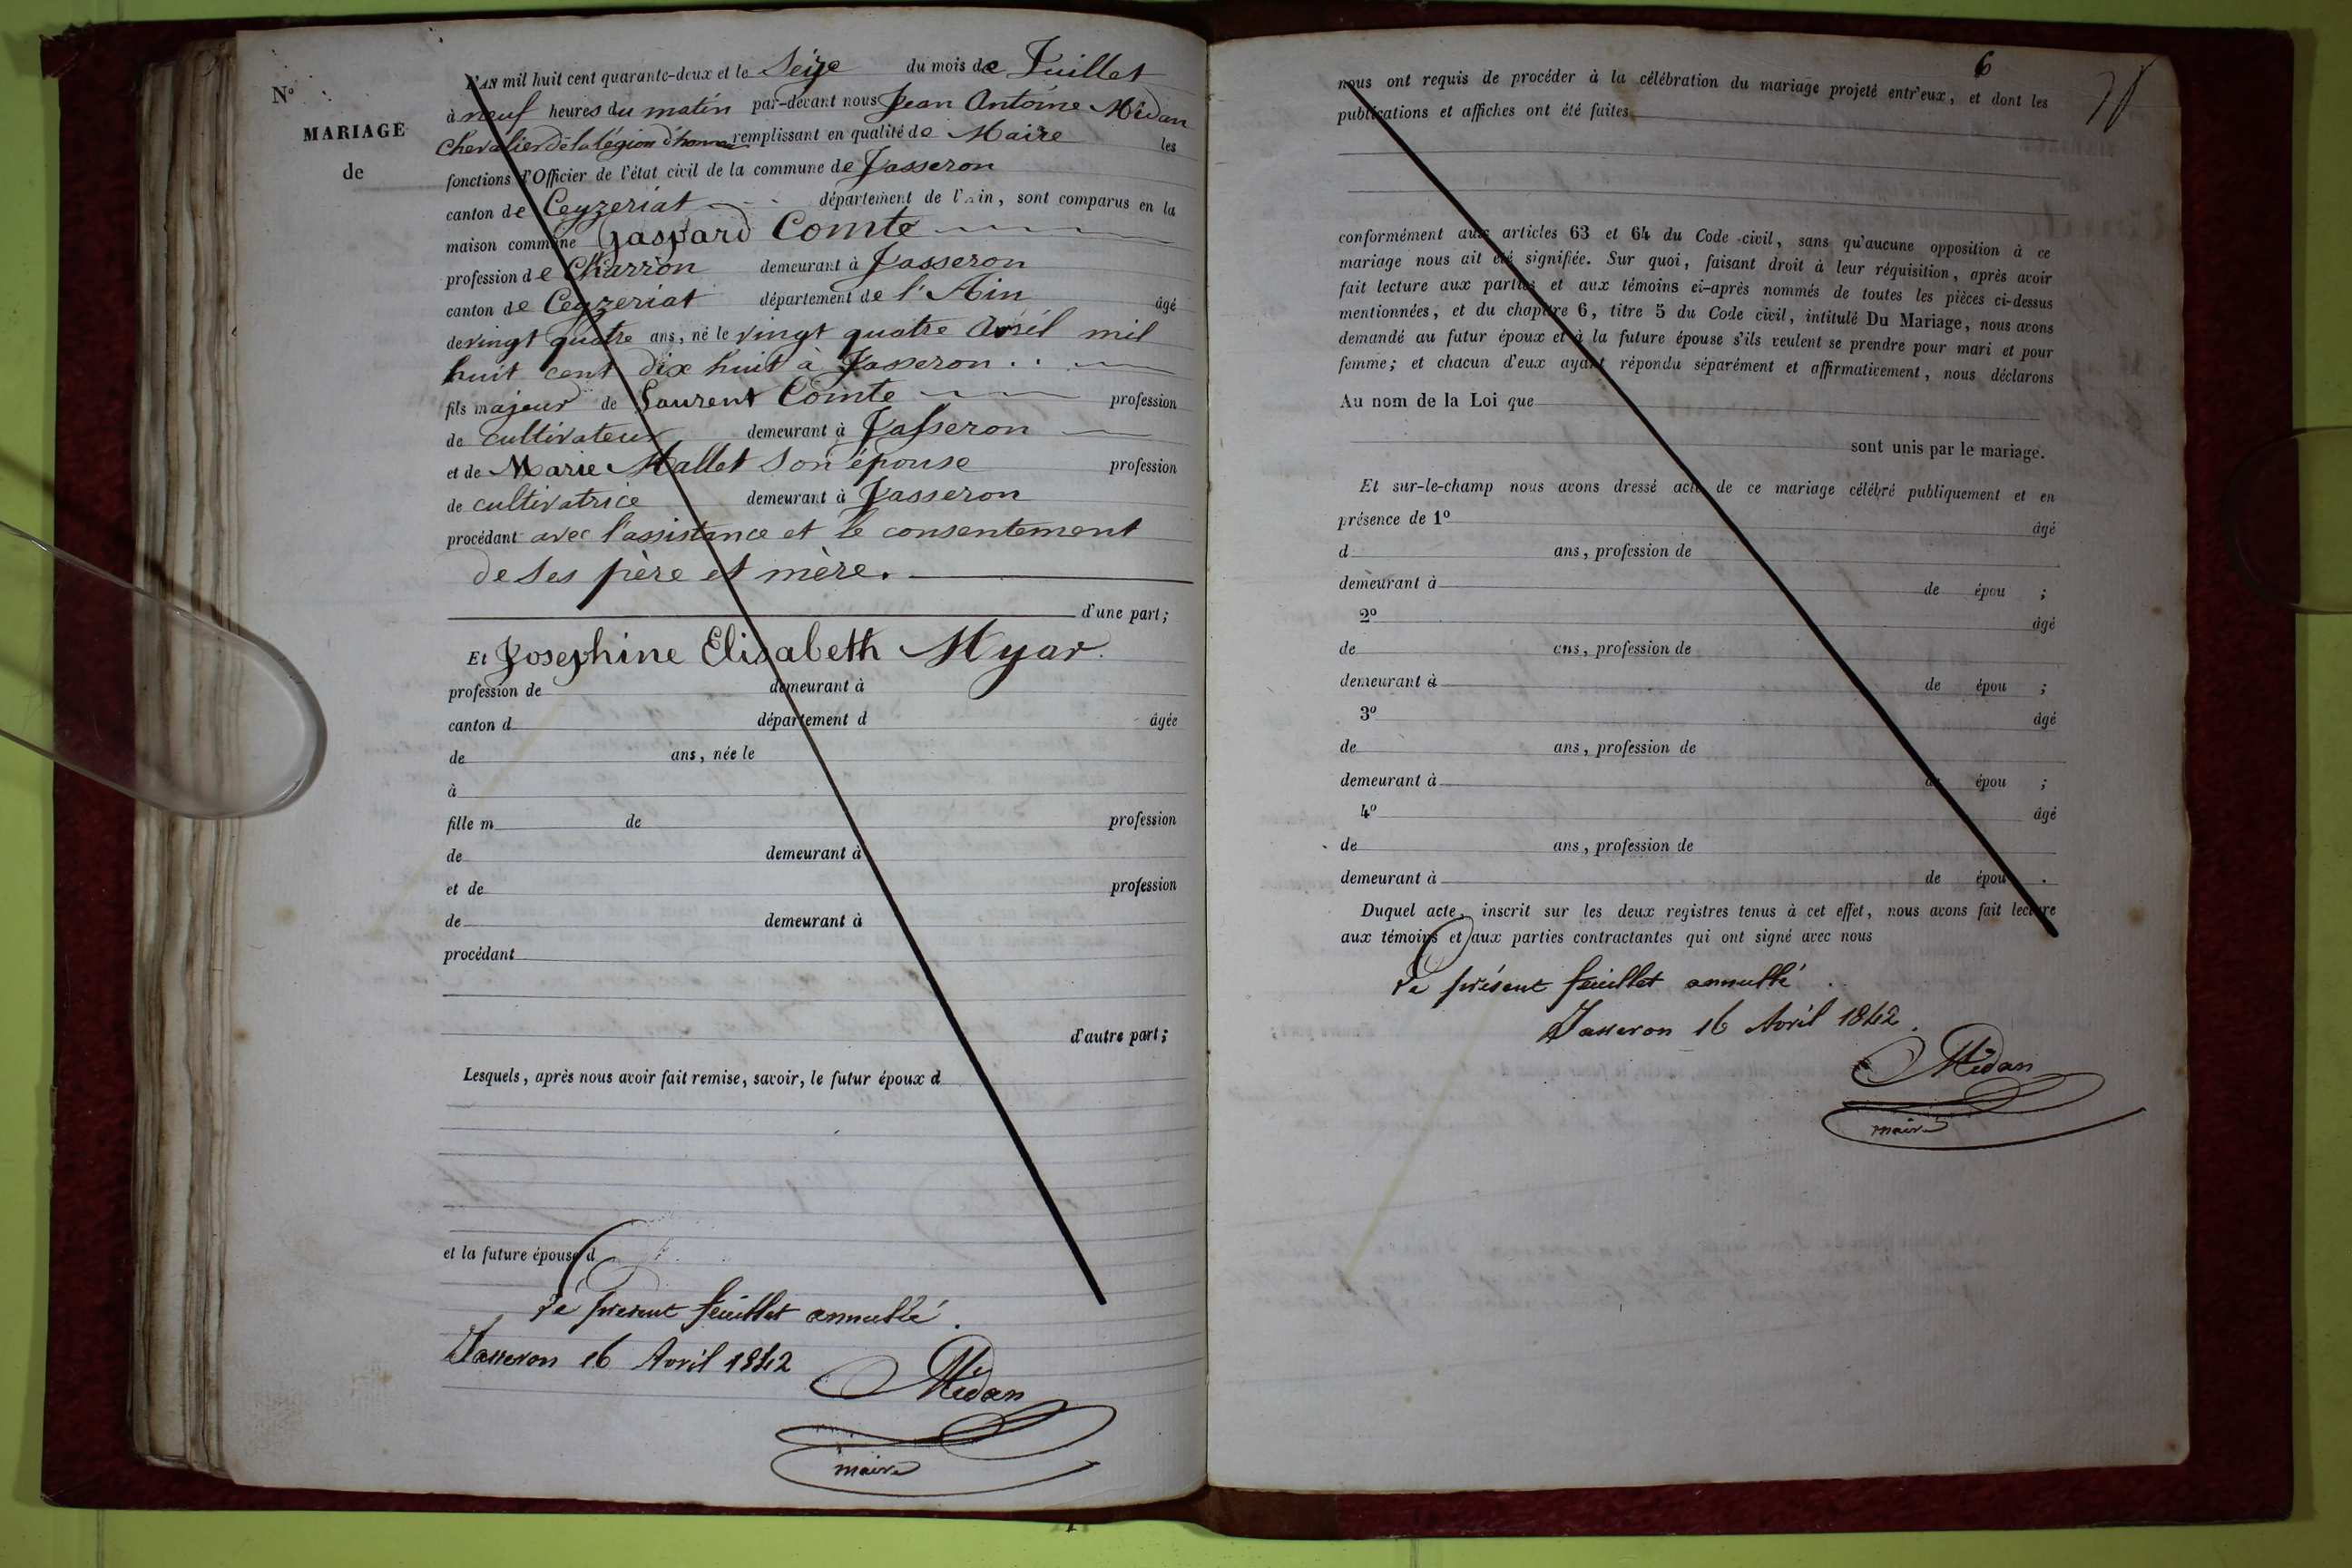 N°
MARIAGE
de
L'AN mil huit cent quarante-deux et le Seize du mois de Juillet
à neuf heures du matin par-devant nous Jean Antoine Midan
chevalier de la légion d'honneur remplissant en qualité de Maire les
fonctions d'Officier de l'état civil de la commune de Jasseron
canton de Ceyzeriat département de l'Ain, sont comparus en la
maison commune Gaspard Comte
profession de Charron demeurant à Jasseron
canton de Ceyzeriat département de l'Ain âgé
de vingt quatre ans, né le vingt quatre Avril mil
huit cent dix huit à Jasseron
fils majeur de Laurent Comte profession
de cultivateur demeurant à Jasseron
et de Marie Mallet son épouse profession
de cultivatrice demeurant à Jasseron
procédant avec l'assistance et le consentement
de ses père et mère.
d'une part;
Et Josephine Elisabeth Myar.
profession de demeurant à
canton d département d âgée
de ans, née le
à
fille m de profession
de demeurant à
et de profession
de demeurant à
procédant
d'autre part;
Lesquels, après nous avoir fait remise, savoir, le futur époux d
et la future épouse d
Le présent feuillet annullé.
Jasseron 16 Avril 1842
Midan
maire
6
nous ont requis de procéder à la célébration du mariage projeté entr'eux, et dont les
publications et affiches ont été faites
conformément aux articles 63 et 64 du Code civil, sans qu'aucune opposition à ce
mariage nous ait été signifiée. Sur quoi, faisant droit à leur réquisition, après avoir
fait lecture aux parties et aux témoins ci-après nommés de toutes les pièces ci-dessus
mentionnées, et du chapitre 6, titre 5 du Code civil, intitulé Du Mariage, nous avons
demandé au futur époux et à la future épouse s'ils veulent se prendre pour mari et pour
femme; et chacun d'eux ayant répondu séparément et affirmativement, nous déclarons
Au nom de la Loi que
sont unis par le mariage.
Et sur-le-champ nous avons dressé acte de ce mariage célébré publiquement et en
présence de 1° âgé
d ans, profession de
demeurant à de épou ;
2° âgé
de ans, profession de
demeurant à de épou ;
3° âgé
de ans, profession de
demeurant à de épou ;
4° âgé
de ans, profession de
demeurant à de épou .
Duquel acte, inscrit sur les deux registres tenus à cet effet, nous avons fait lecture
aux témoins et aux parties contractantes qui ont signé avec nous
Le présent feuillet annullé
Jasseron 16 Avril 1842.
Midan
maire